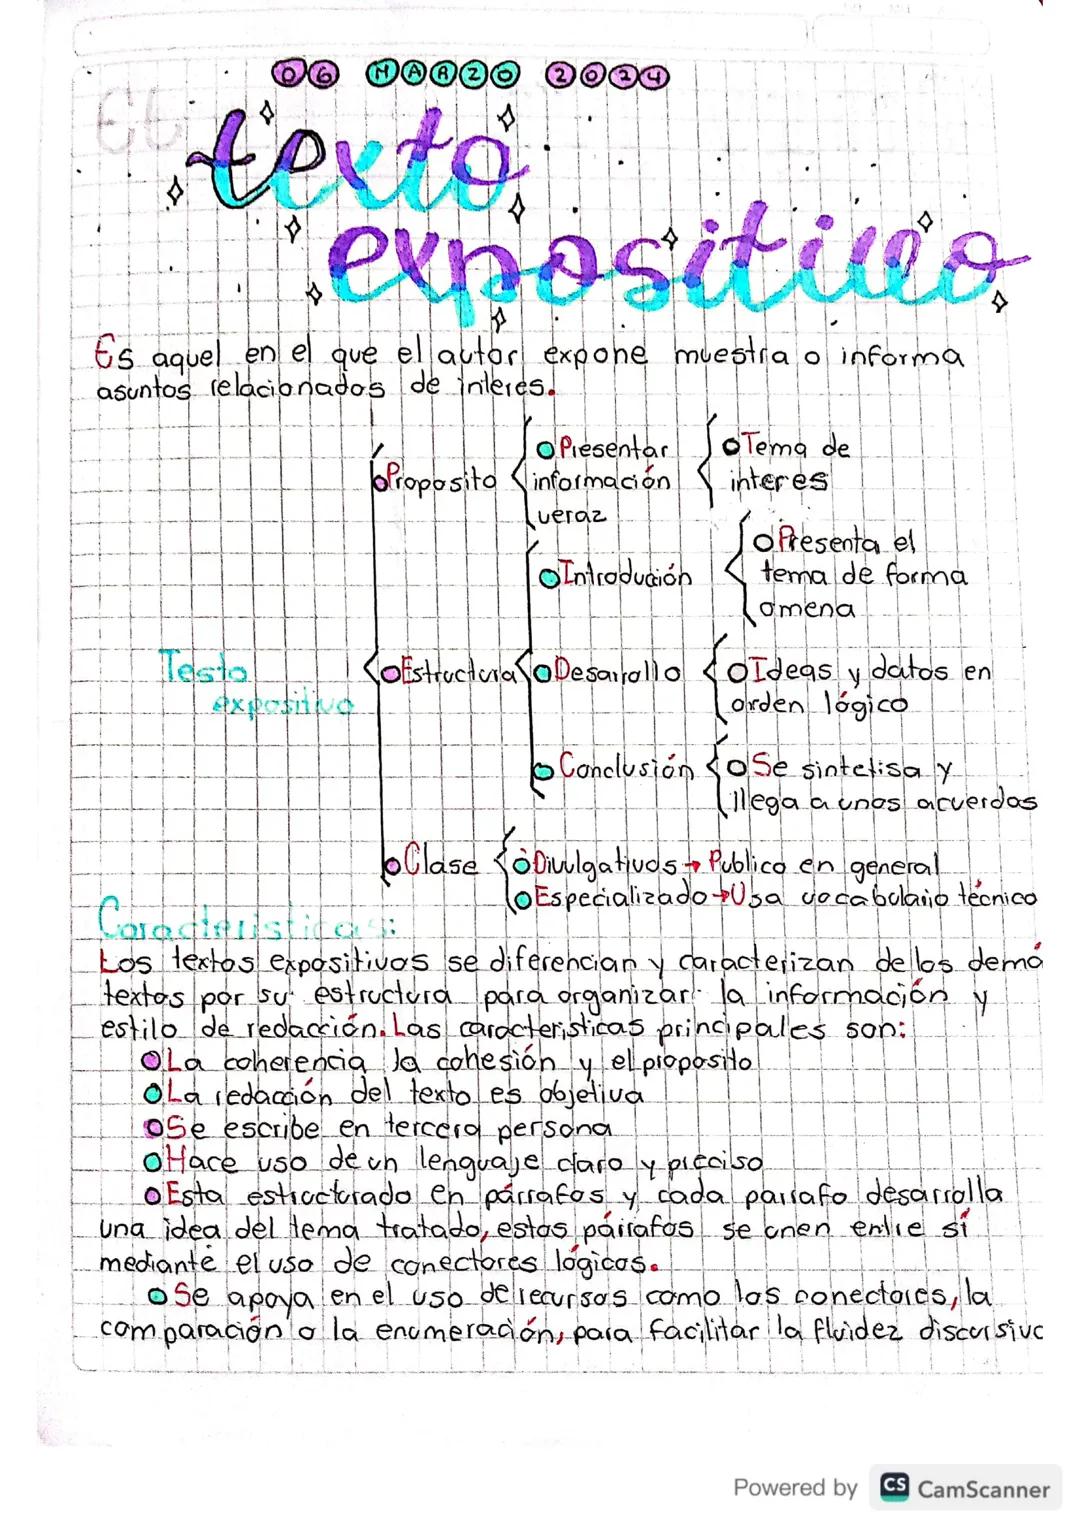 06 MARZO 2024
texto
expositivo
Es aquel en el que el autor expone muestra o informa
asuntos relacionados de interes.
Proposito
Presentar
información
veraz
Tema de
interes
Testo
expositivo
Estructura
Introducción
Presenta el
tema de forma
amena
Desarrollo
Ideas y datos en
orden lógico
Conclusión
Se sintetisa y
llega a unos acuerdos
Clase
Divulgativos → Publico en general
Especializado → Usa vocabulario técnico
Caracteristicas:
Los textos expositivos se diferencian y caracterizan de los demá
textos por su estructura para organizar la información y
estilo de redacción. Las caracteristicas principales son:
La coherencia la cohesión y el proposito
La redacción del texto es objetiva
Se escribe en tercera persona
Hace uso de un lenguaje claro y preciso
Esta estructurado en párrafos y cada parrafo desarrolla
una idea del tema tratado, estos párrafos se unen entre sí
mediante el uso de conectores lógicos.
Se apoya en el uso de recursos como los conectores, la
comparación o la enumeración, para facilitar la fluidez discursiva
Powered by CS CamScanner